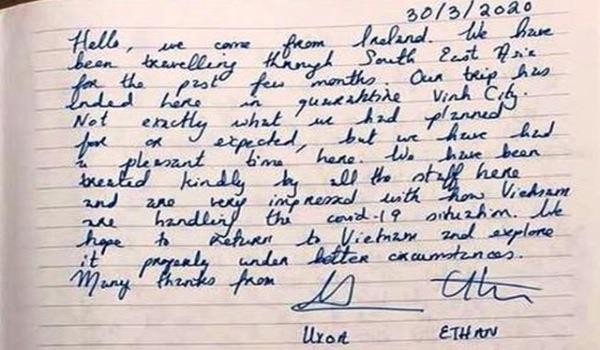 30/3/2020
Hello, we come from Ireland. We have
been travelling through South East Asia
for the past few months. Our trip has
ended here in quarantine Vinh City.
Not exactly what we had planned
for or expected, but we have had
a pleasant time here. We have been
treated kindly by all the staff here
and are very impressed with how Vietnam
are handling the covid-19 situation. We
hope to return to Vietnam and explore
it properly under better circumstances.
Many thanks from
ETHAN